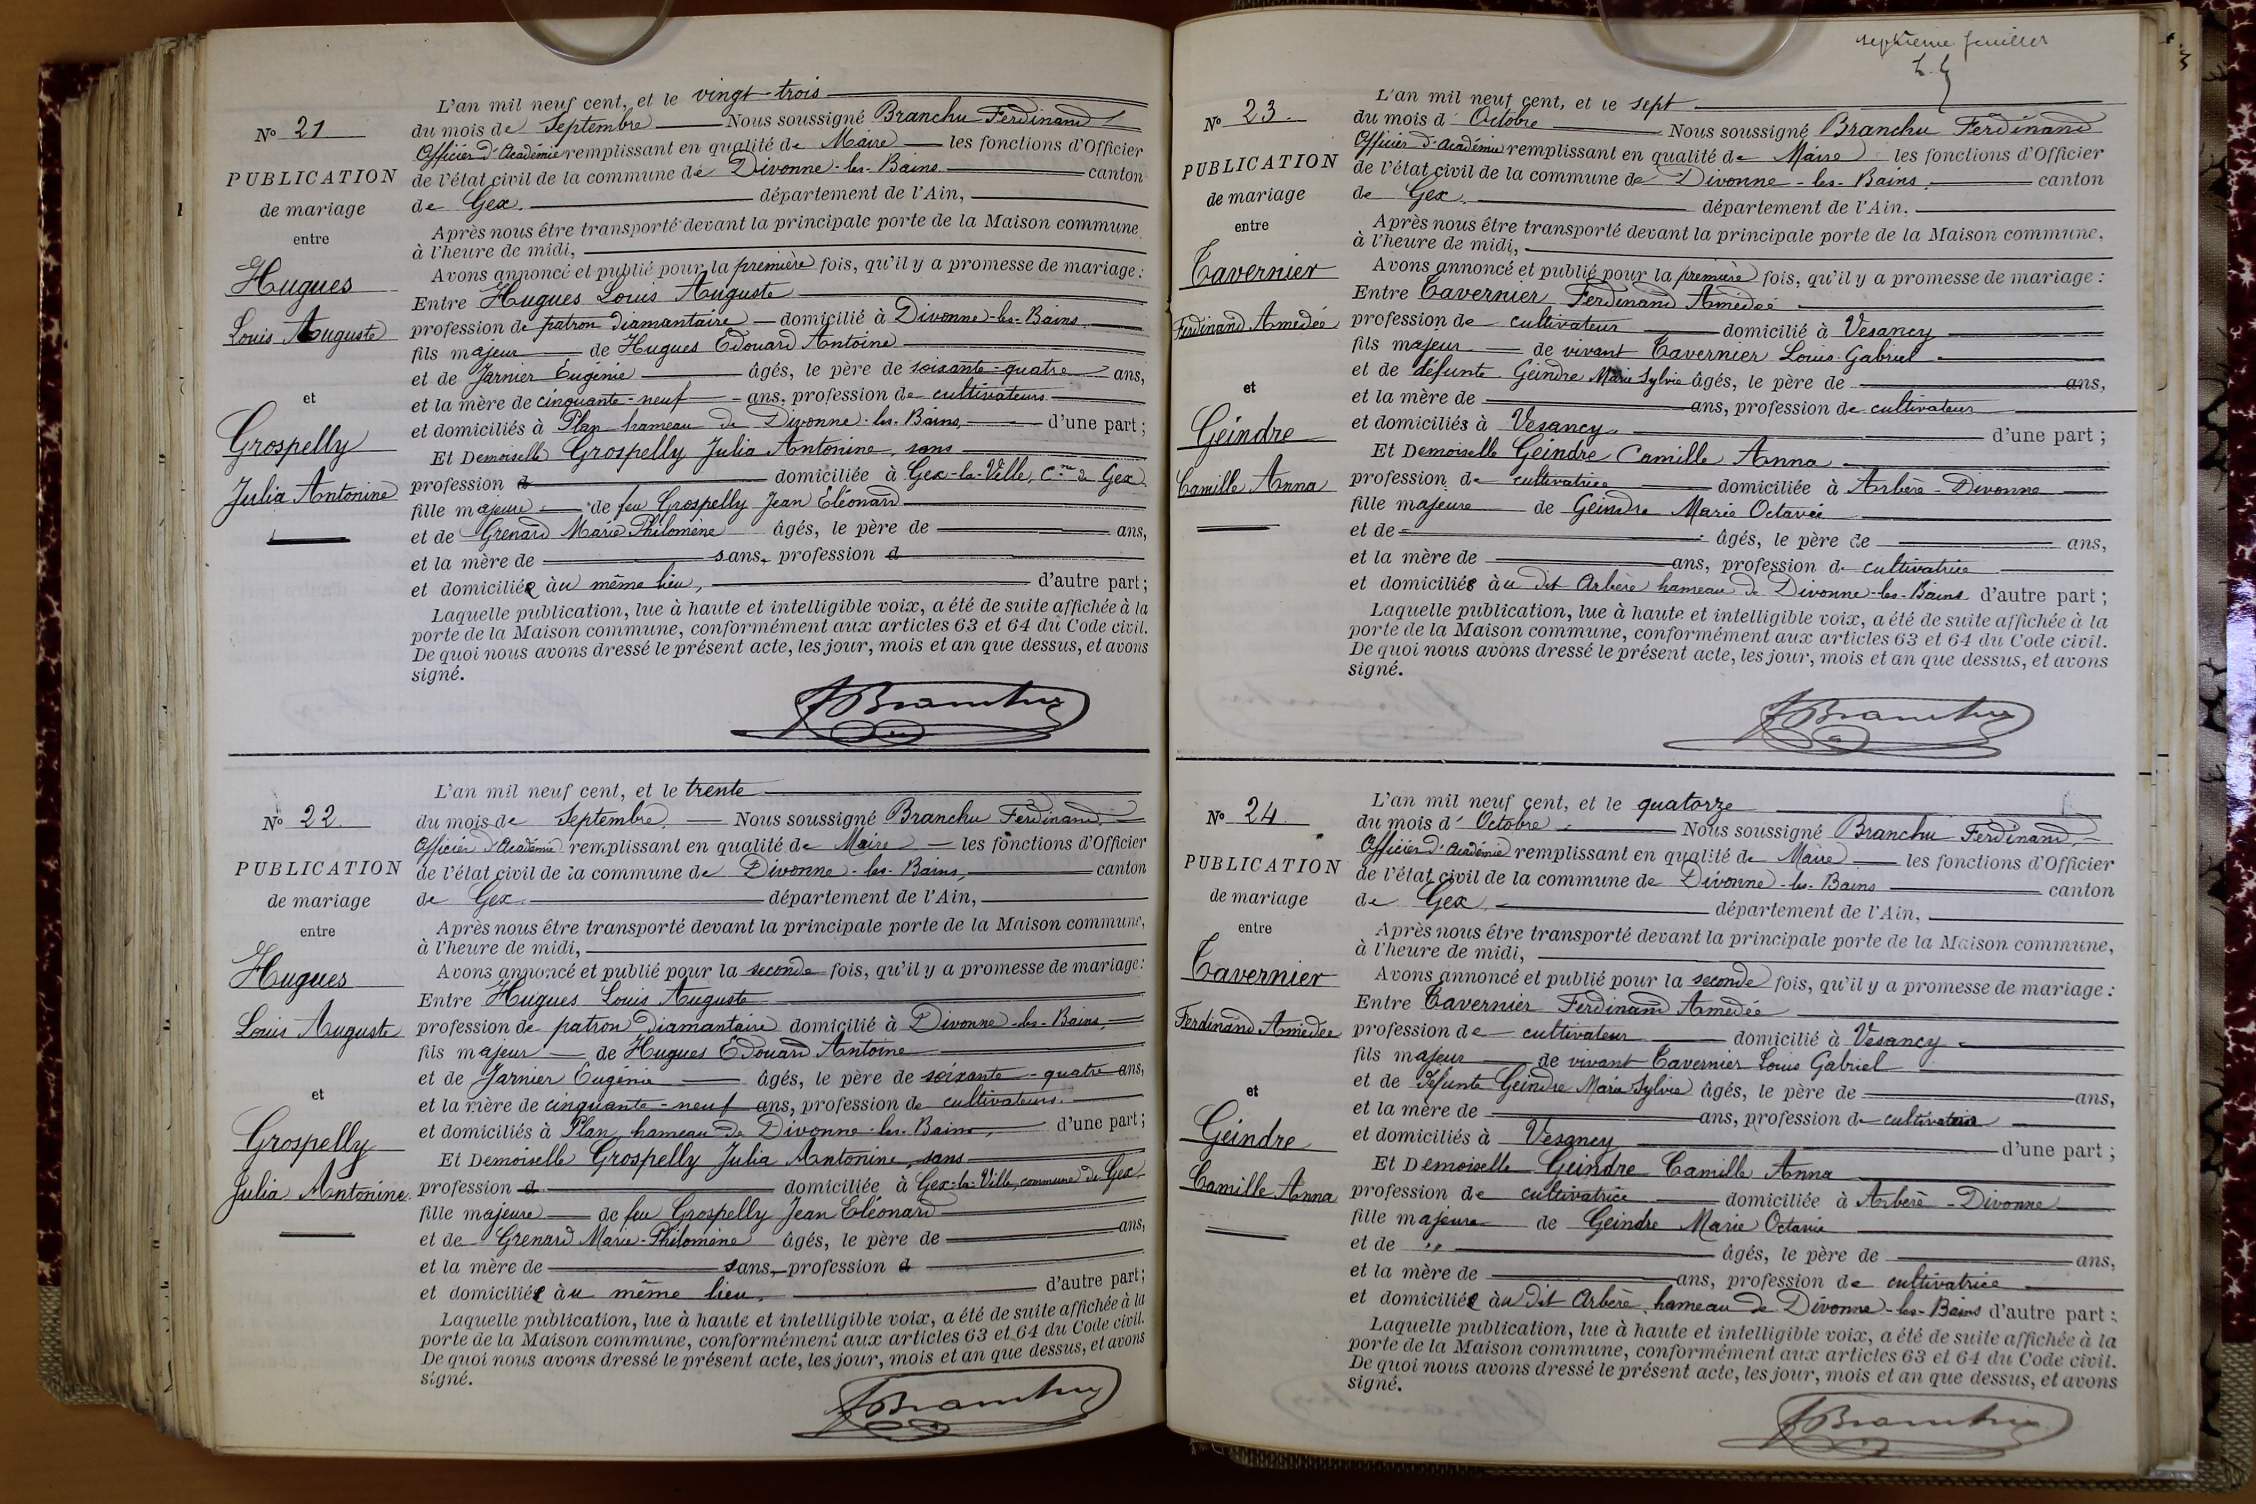 N° 21
PUBLICATION
de mariage
entre
Hugues
Louis Auguste
et
Grospelly
Julia Antonine
L'an mil neuf cent, et le vingt-trois
du mois de Septembre Nous soussigné Branchu Ferdinand
Officier d'Académie remplissant en qualité de Maire les fonctions d'Officier
de l'état civil de la commune de Divonne-les-Bains canton
de Gex. département de l'Ain,
Après nous être transporté devant la principale porte de la Maison commune,
à l'heure de midi,
Avons annoncé et publié pour la première fois, qu'il y a promesse de mariage :
Entre Hugues Louis Auguste
profession de patron diamantaire domicilié à Divonne-les-Bains
fils majeur de Hugues Edouard Antoine
et de Jarnier Eugénie âgés, le père de soixante-quatre ans,
et la mère de cinquante-neuf ans, profession de cultivateurs
et domiciliés à Plan hameau de Divonne-les-Bains, d'une part ;
Et Demoiselle Grospelly Julia Antonine, sans
profession d domiciliée à Gex-la-Ville, Cne de Gex
fille majeure de feu Grospelly Jean Eléonard
et de Grenard Marie Philomène âgés, le père de ans,
et la mère de sans, profession d
et domiciliée au même lieu, d'autre part ;
Laquelle publication, lue à haute et intelligible voix, a été de suite affichée à la
porte de la Maison commune, conformément aux articles 63 et 64 du Code civil.
De quoi nous avons dressé le présent acte, les jour, mois et an que dessus, et avons
signé.
FBranchu
N° 22.
PUBLICATION
de mariage
entre
Hugues
Louis Auguste
et
Grospelly
Julia Antonine.
L'an mil neuf cent, et le trente
du mois de Septembre. Nous soussigné Branchu Ferdinand.
Officier d'Académie remplissant en qualité de Maire les fonctions d'Officier
de l'état civil de la commune de Divonne-les-Bains, canton
de Gex. département de l'Ain,
Après nous être transporté devant la principale porte de la Maison commune,
à l'heure de midi,
Avons annoncé et publié pour la seconde fois, qu'il y a promesse de mariage :
Entre Hugues Louis Auguste
profession de patron diamantaire domicilié à Divonne-les-Bains,
fils majeur de Hugues Edouard Antoine
et de Jarnier Eugénie âgés, le père de soixante-quatre ans,
et la mère de cinquante-neuf ans, profession de cultivateurs.
et domiciliés à Plan, hameau de Divonne-les-Bains, d'une part ;
Et Demoiselle Grospelly Julia Antonine, sans
profession d domiciliée à Gex-la-Ville, commune de Gex.
fille majeure de feu Grospelly Jean Eléonard
et de Grenard Marie-Philomène âgés, le père de ans,
et la mère de sans, profession d
et domiciliée au même lieu. d'autre part ;
Laquelle publication, lue à haute et intelligible voix, a été de suite affichée à la
porte de la Maison commune, conformément aux articles 63 et 64 du Code civil.
De quoi nous avons dressé le présent acte, les jour, mois et an que dessus, et avons
signé.
FBranchu
septième feuillet
N° 23.
PUBLICATION
de mariage
entre
Tavernier
Ferdinand Amédée
et
Geindre
Camille Anna
L'an mil neuf cent, et le sept
du mois d' Octobre Nous soussigné Branchu Ferdinand
Officier d'Académie remplissant en qualité de Maire les fonctions d'Officier
de l'état civil de la commune de Divonne-les-Bains. canton
de Gex. département de l'Ain.
Après nous être transporté devant la principale porte de la Maison commune,
à l'heure de midi,
Avons annoncé et publié pour la première fois, qu'il y a promesse de mariage :
Entre Tavernier Ferdinand Amédée
profession de cultivateur domicilié à Vesancy
fils majeur de vivant Tavernier Louis Gabriel
et de défunte Geindre Marie Sylvie âgés, le père de ans,
et la mère de ans, profession de cultivateur
et domiciliés à Vesancy. d'une part ;
Et Demoiselle Geindre Camille Anna
profession de cultivatrice domiciliée à Arbère-Divonne
fille majeure de Geindre Marie Octavie
et de âgés, le père de ans,
et la mère de ans, profession de cultivatrice
et domiciliés au dit Arbère hameau de Divonne-les-Bains d'autre part ;
Laquelle publication, lue à haute et intelligible voix, a été de suite affichée à la
porte de la Maison commune, conformément aux articles 63 et 64 du Code civil.
De quoi nous avons dressé le présent acte, les jour, mois et an que dessus, et avons
signé.
FBranchu
N° 24.
PUBLICATION
de mariage
entre
Tavernier
Ferdinand Amédée
et
Geindre
Camille Anna
L'an mil neuf cent, et le quatorze
du mois d' Octobre. Nous soussigné Branchu Ferdinand,
Officier d'Académie remplissant en qualité de Maire les fonctions d'Officier
de l'état civil de la commune de Divonne-les-Bains canton
de Gex. département de l'Ain,
Après nous être transporté devant la principale porte de la Maison commune,
à l'heure de midi,
Avons annoncé et publié pour la seconde fois, qu'il y a promesse de mariage :
Entre Tavernier Ferdinand Amédée
profession de cultivateur domicilié à Vesancy
fils majeur de vivant Tavernier Louis Gabriel
et de défunte Geindre Marie Sylvie âgés, le père de ans,
et la mère de ans, profession de cultivateur
et domiciliés à Vesancy d'une part ;
Et Demoiselle Geindre Camille Anna
profession de cultivatrice domiciliée à Arbère-Divonne
fille majeure de Geindre Marie Octavie
et de " âgés, le père de ans,
et la mère de ans, profession de cultivatrice
et domiciliée au dit Arbère, hameau de Divonne-les-Bains d'autre part ;
Laquelle publication, lue à haute et intelligible voix, a été de suite affichée à la
porte de la Maison commune, conformément aux articles 63 et 64 du Code civil.
De quoi nous avons dressé le présent acte, les jour, mois et an que dessus, et avons
signé.
FBranchu